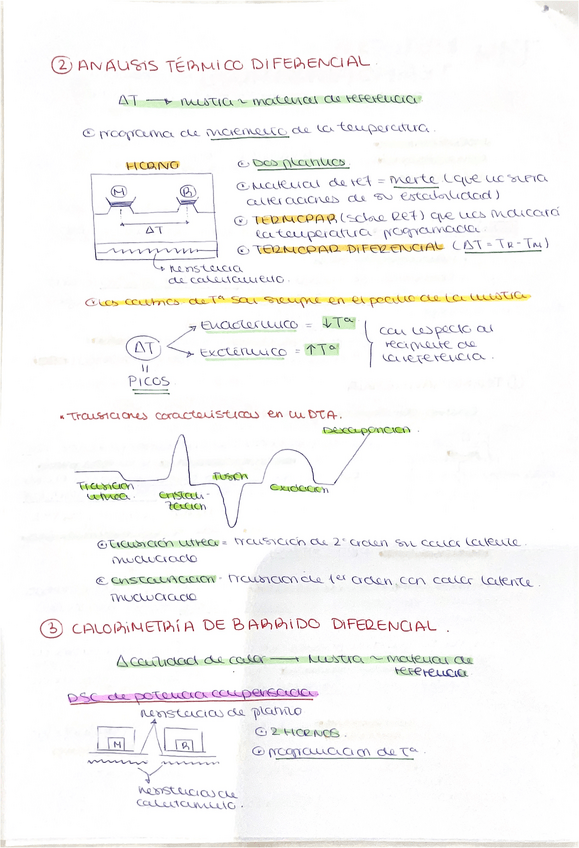 ② ANÁLISIS TÉRMICO DIFERENCIAL.
ΔT → muestra ~ material de referencia
programa de incremento de la temperatura.
HORNO
M
R
ΔT
Resistencia
de calentamiento.
Dos platillos
Material de ref = inerte (que no sufra
alteraciones de su estabilidad)
TERMOPAR (sobre REF) que nos indicará
la temperatura programada
TERMOPAR DIFERENCIAL (ΔT = TR - TM)
los cambios de Tª son siempre en el pocillo de la muestra
ΔT
PICOS
Endotérmico = ↓Tª
Exotérmico = ↑Tª
con respecto al
de
la referencia.
* Transiciones características en un DTA.
Descomposición.
Transición
vítrea.
Cristali-
zación
Fusión
Oxidación
Transición vítrea = transición de 2º orden sin calor latente
involucrado
Cristalización = transición de 1er orden, con calor latente
involucrado
③ CALORIMETRÍA DE BARRIDO DIFERENCIAL.
Δ cantidad de calor → Muestra ~ material de
referencia
DSC de potencia compensada
resistencias de platino
M
R
Resistencias de
calentamiento.
2 HORNOS.
programación de Tª.